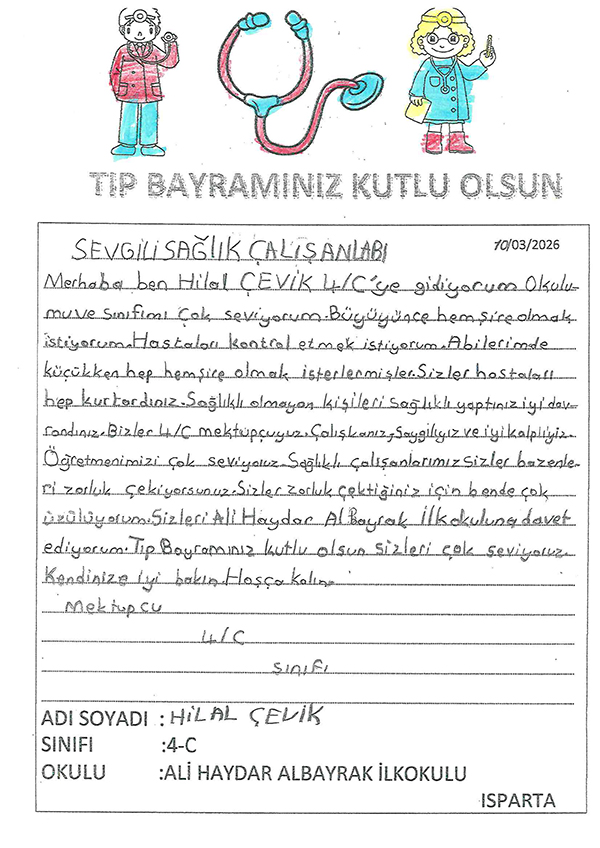 TIP BAYRAMINIZ KUTLU OLSUN
SEVGİLİ SAĞLIK ÇALIŞANLARI
10/03/2026
Merhaba ben Hilal ÇEVİK 4/C'ye gidiyorum Okulu-
mu ve sınıfımı çok seviyorum. Büyüyünce hemşire olmak
istiyorum. Hastaları kontrol etmek istiyorum. Abilerimde
küçükken hep hemşire olmak isterlermişler. Sizler hastaları
hep kurtardınız. Sağlıklı olmayan kişileri sağlıklı yaptınız iyi dav-
randınız. Bizler 4/C mektupçuyuz. Çalışkanız, Saygılıyız ve iyi kalpliyiz.
Öğretmenimizi çok seviyoruz. Sağlıklı çalışanlarımız sizler bazenle-
ri zorluk çekiyorsunuz. Sizler zorluk çektiğiniz için bende çok
üzülüyorum. Sizleri Ali Haydar AlBayrak İlkokuluna davet
ediyorum. Tıp Bayramınız kutlu olsun sizleri çok seviyoruz.
Kendinize iyi bakın. Hoşça kalın.
Mektupcu
4/C
sınıfı
ADI SOYADI : HİLAL ÇEVİK
SINIFI :4-C
OKULU :ALİ HAYDAR ALBAYRAK İLKOKULU
ISPARTA